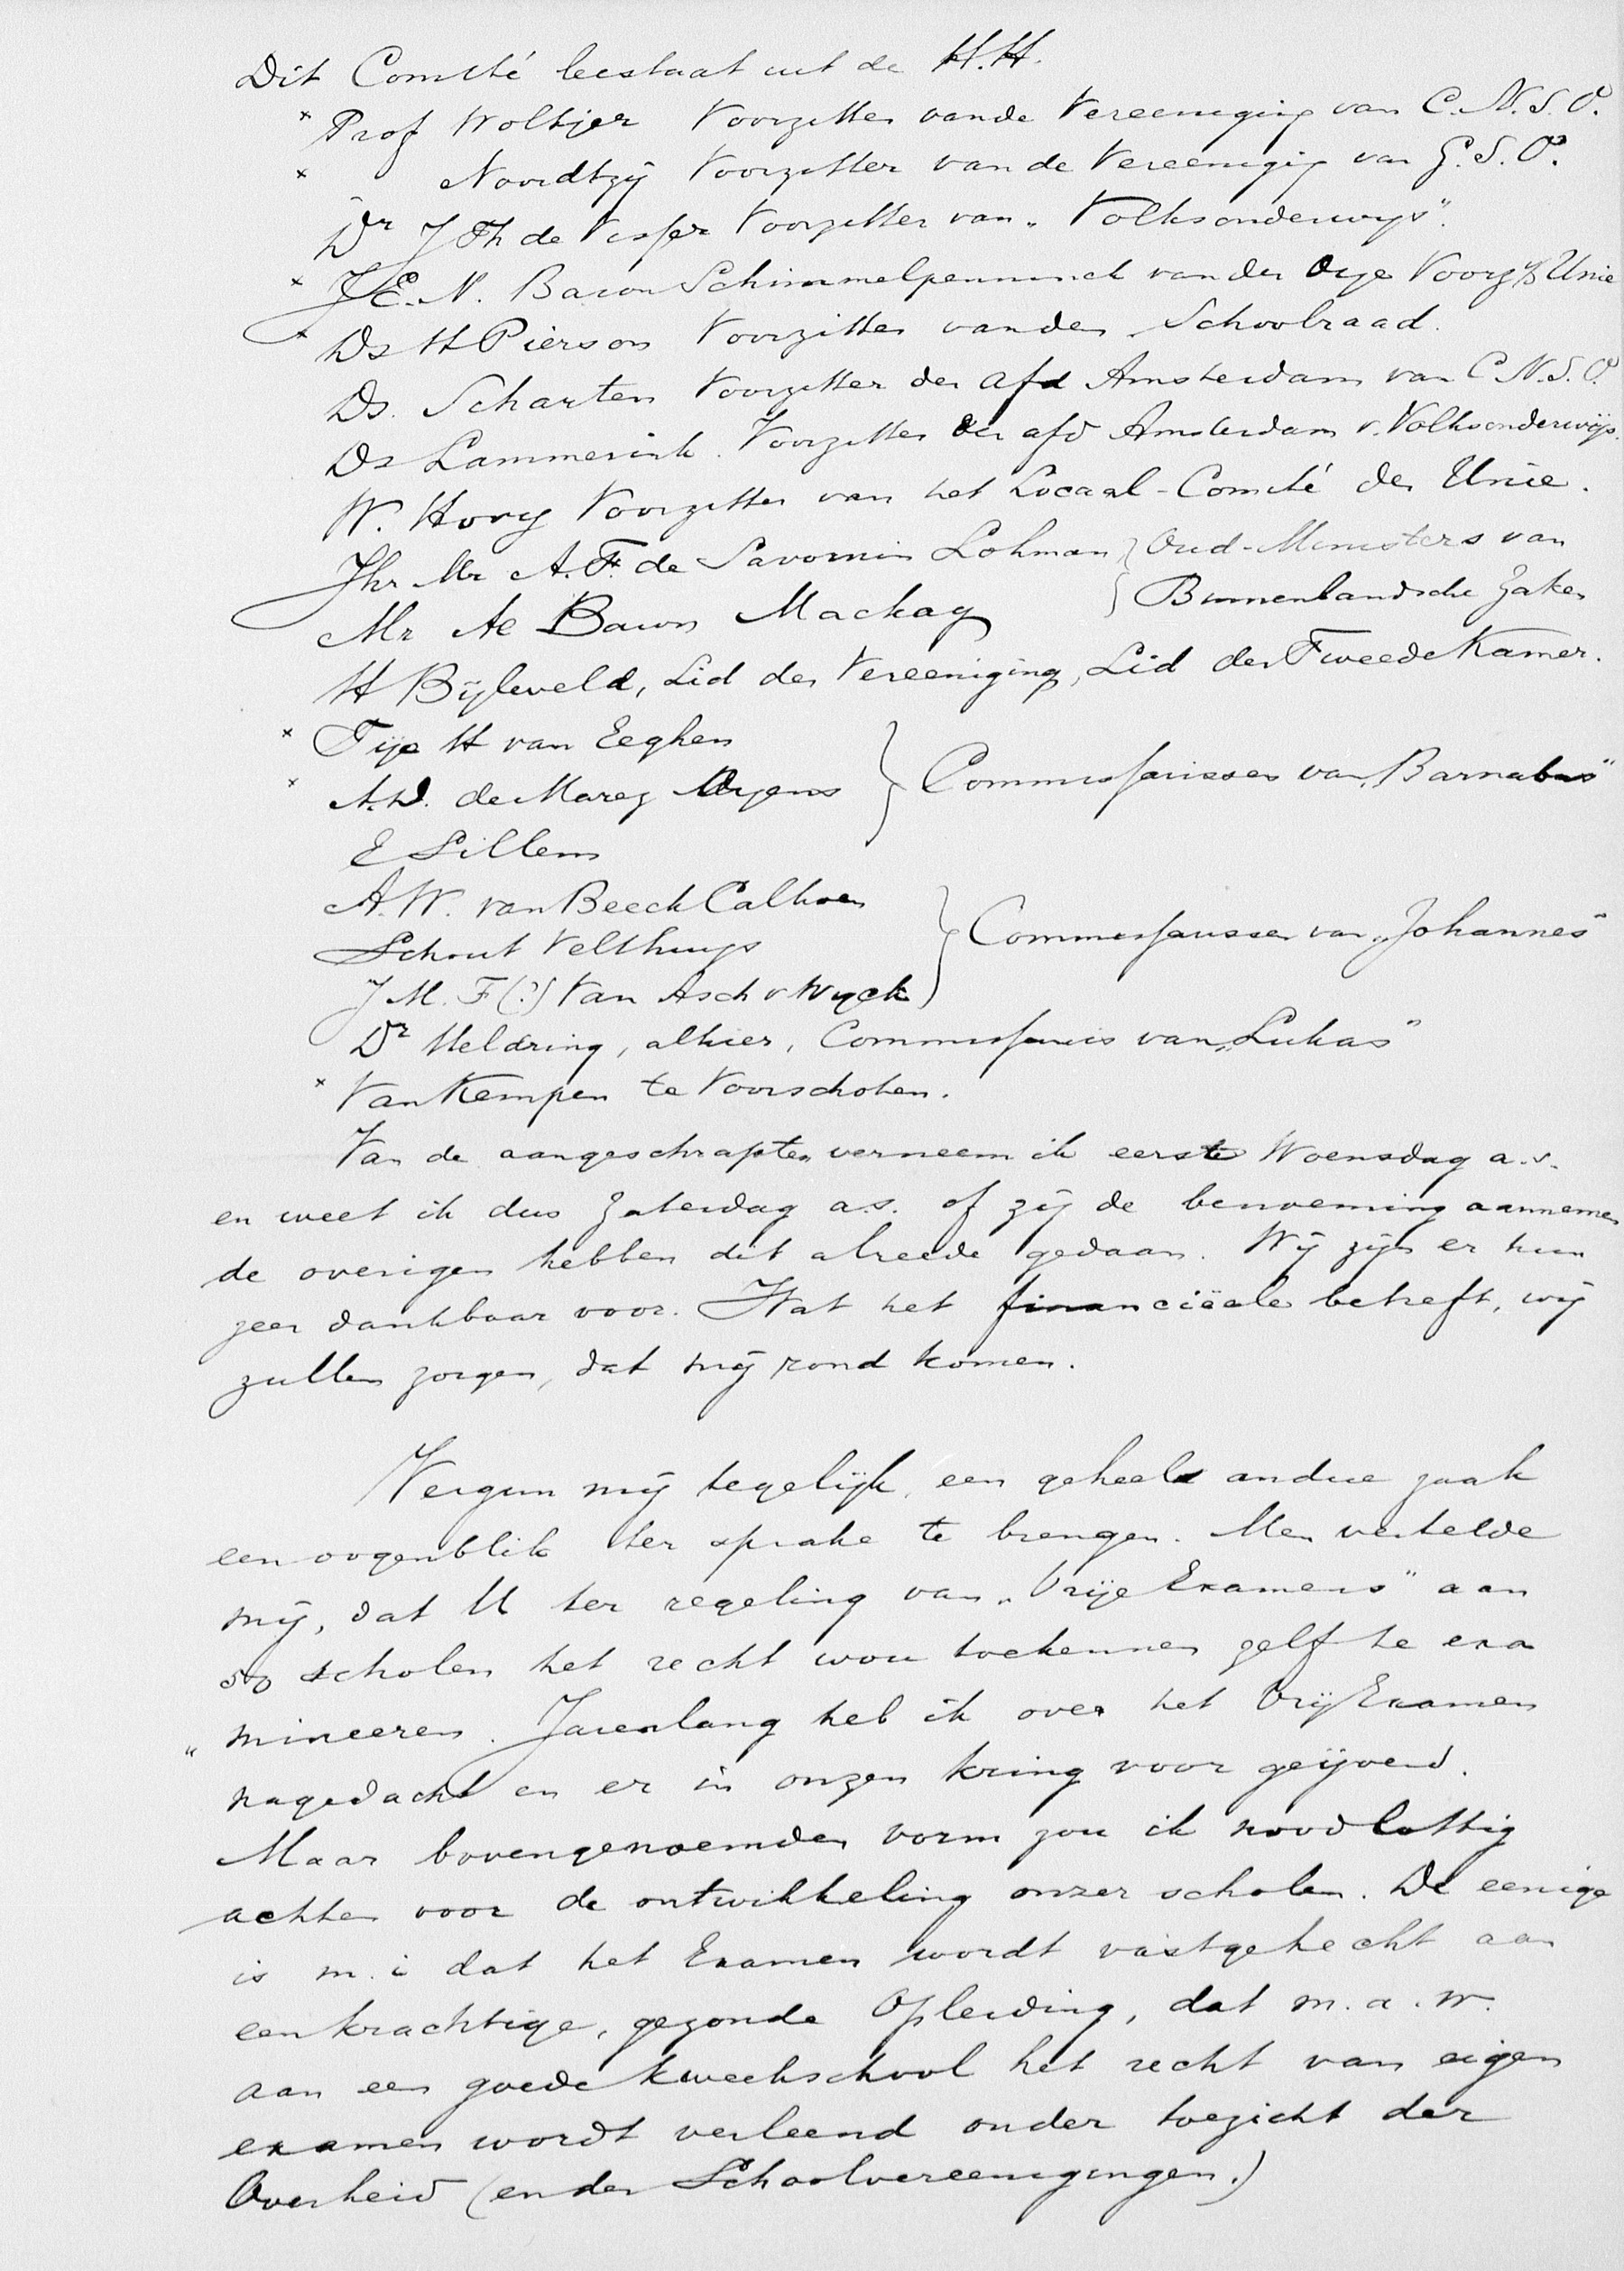 Dit Comité bestaat uit de H.H.
× Prof Woltjer Voorzitter van de Vereeniging van C.N.S.O.
× Noordtzij Voorzitter van de Vereenigig van G.S.O.
Dr J Th de Visser Voorzitter van „Volksonderwijs".
× J.E.N. Baron Schimmelpenninck van der Oye Voorz. Unie
× Ds H Pierson Voorzitter van den Schoolraad.
Ds. Scharten Voorzitter der afd Amsterdam van C.N.S.O.
Ds Lammerink. Voorzitter der afd Amsterdam v. Volksonderwijs.
W. Hovy Voorzitter van het Locaal-Comité der Unie.
Jhr Mr A.F. de Savornin Lohman } Oud-Ministers van
Mr Ae Baron Mackay } Binnenlandsche Zaken
H Bijleveld, Lid der Vereeniging, Lid der Tweede Kamer.
× Tije H van Eeghen
× A.D. de Marez Oyens } Commissarissen van „Barnabas"
E Sillem
A.W. van Beeck Calkoen
Schout Velthuys } Commissarissen van „Johannes"
J M. F (?) Van Asch v Wyck
Dr Heldring, alhier, Commissaris van „Lukas"
× Van Kempen te Voorschoten.
Van de aangeschrapten verneem ik eerst Woensdag a.s.
en weet ik dus Zaterdag a.s. of zij de benoeming aannemen
de overigen hebben dit alreede gedaan. Wij zijn er hun
zeer dankbaar voor. Wat het financiëele betreft, wij
zullen zorgen, dat wij rond komen.
Vergun mij tegelijk, een geheel andere zaak
een oogenblik ter sprake te brengen. Men vertelde
mij, dat U ter regeling van „Vrije Examens" aan
50 scholen het recht wou toekennen zelf te exa
mineeren. Jarenlang heb ik over het Vrij Examen
nagedacht en er in onzen kring voor geijverd.
Maar bovengenoemden vorm zou ik noodlottig
achten voor de ontwikkeling onzer scholen. De eenige
is m.i dat het Examen wordt vastgehecht aan
een krachtige, gezonde Opleiding, dat m.a.w.
aan een goede kweekschool het recht van eigen
examen wordt verleend onder toezicht der
Overheid (en der Schoolvereenigingen.)